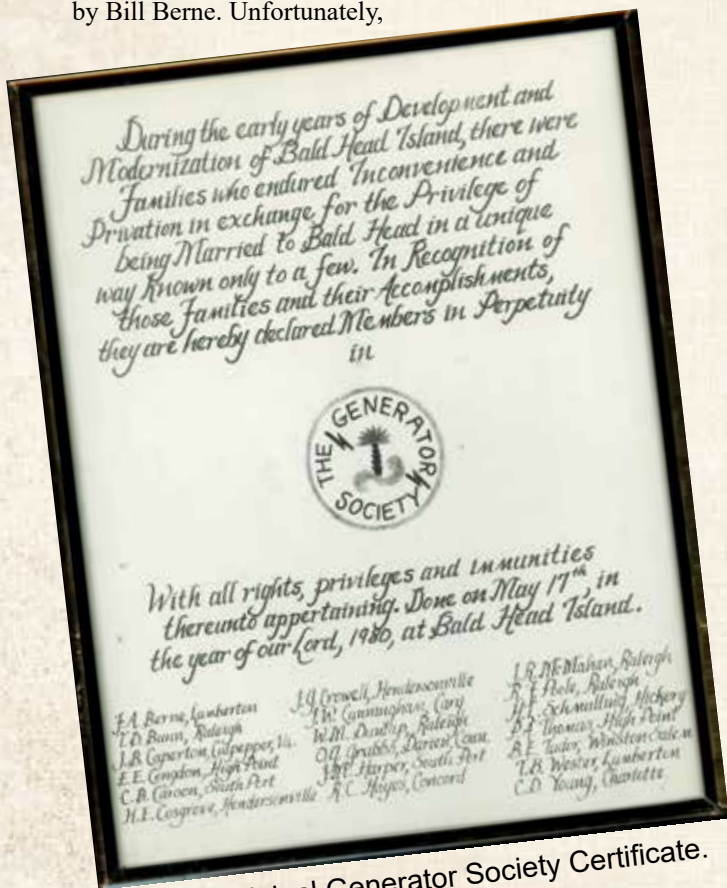 by Bill Berne. Unfortunately,
During the early years of Development and
Modernization of Bald Head Island, there were
Families who endured Inconvenience and
Privation in exchange for the Privilege of
being Married to Bald Head in a unique
way Known only to a few. In Recognition of
those Families and their Accomplishments,
they are hereby declared Members in Perpetuity
in
THE GENERATOR SOCIETY
With all rights, privileges and immunities
thereunto appertaining. Done on May 17th, in
the year of our Lord, 1980, at Bald Head Island.
Berne, Lumberton
T.D. Bunn, Raleigh
J.B. Caperton, Culpepper, Va.
E.E. Congdon, High Point
C.B. Caroon, South Port
H.E. Cosgrove, Hendersonville
Crowell, Hendersonville
J.W. Cunningham, Cary
W.M. Dunlap, Raleigh
O.G. Grubbs, Darien, Conn.
Harper, South Port
R.C. Hayes, Concord
J.R. McMahan, Raleigh
Poole, Raleigh
Schmalling, Hickory
Thomas, High Point
Tudor, Winston Salem
T.B. Wester, Lumberton
C.D. Young, Charlotte
Generator Society Certificate.